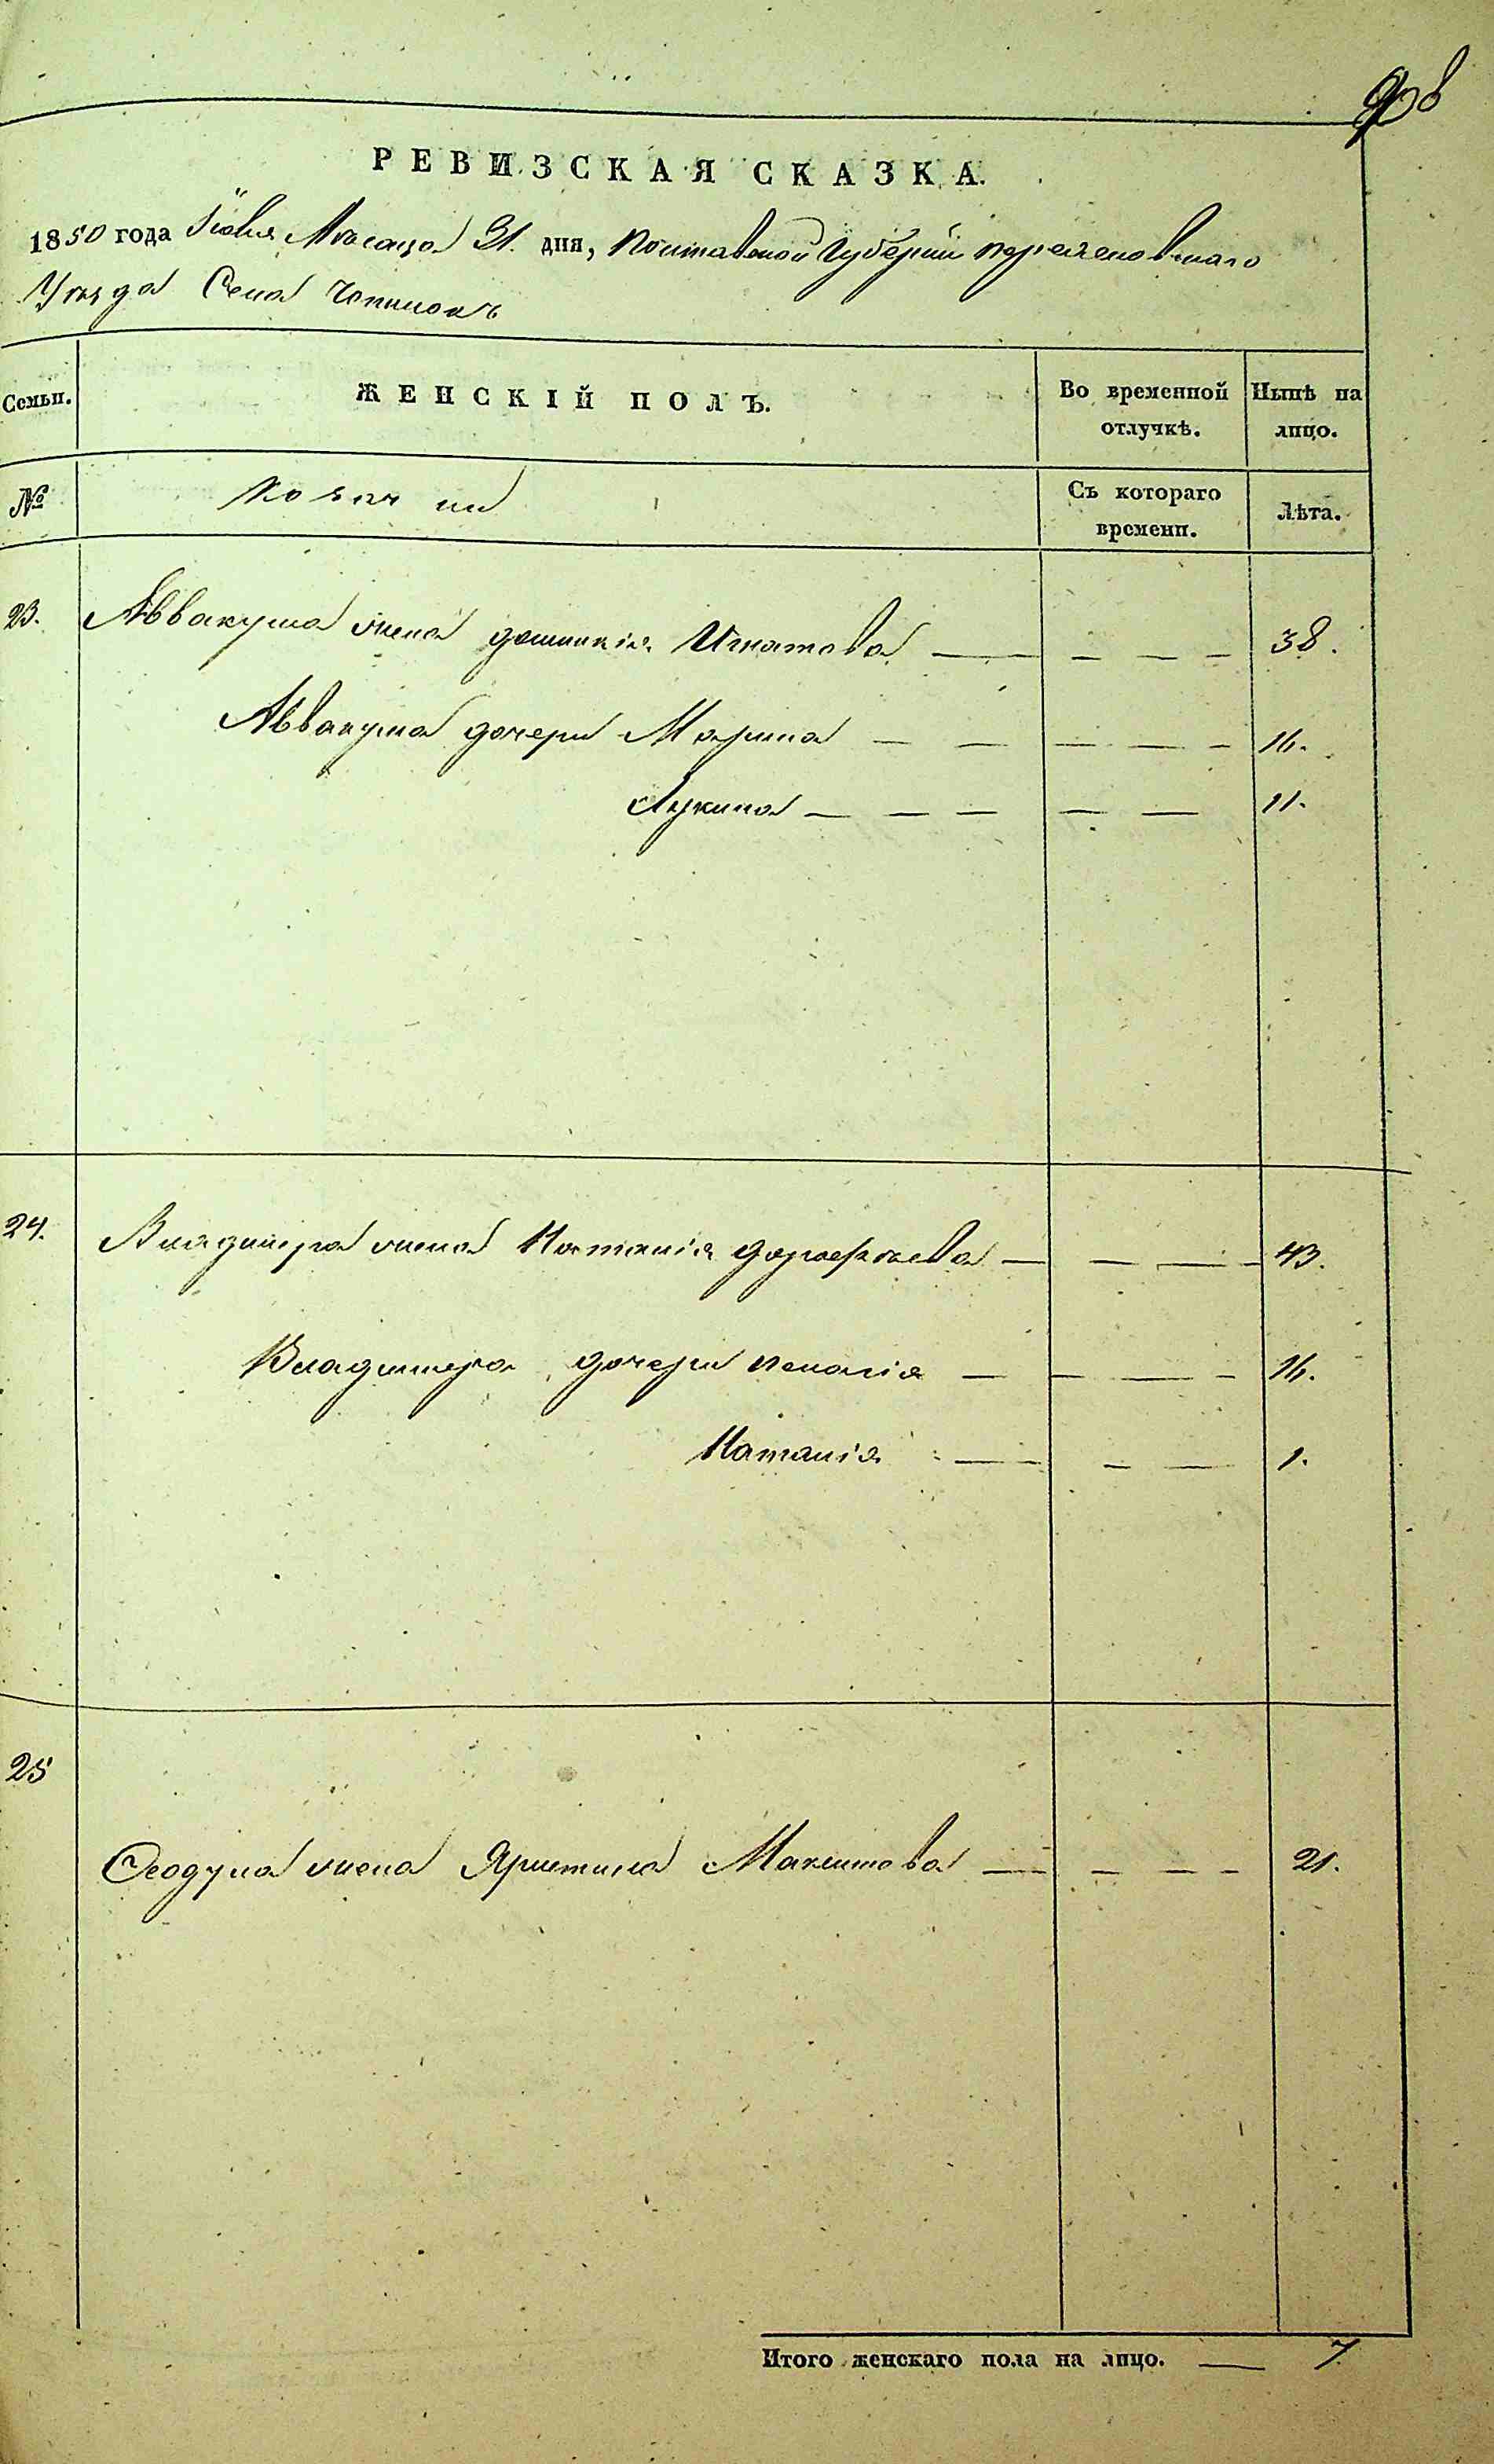 РЕВИЗСКАЯ СКАЗКА.
1850 года Іюля Мѣсяца 31. дня, Полтавской Губерніи
Уѣзда Села
Семьи. ЖЕНСКІЙ ПОЛЪ. Во временной отлучкѣ. Нынѣ на лицо.
№ Козачки Съ котораго времени. Лѣта.
23. Аввакума жена Домникія Игнатова — — — — 38.
Аввакума дочери Марина — — — — — 16.
Лукина — — — — — 11.
24. Владимера жена Наталія — — — 43.
Владимера дочери Пелагія — — — — 16.
Наталія — — — 1.
25
Феодула жена Христина Максимова — — — — 21.
Итого женскаго пола на лицо. — 7